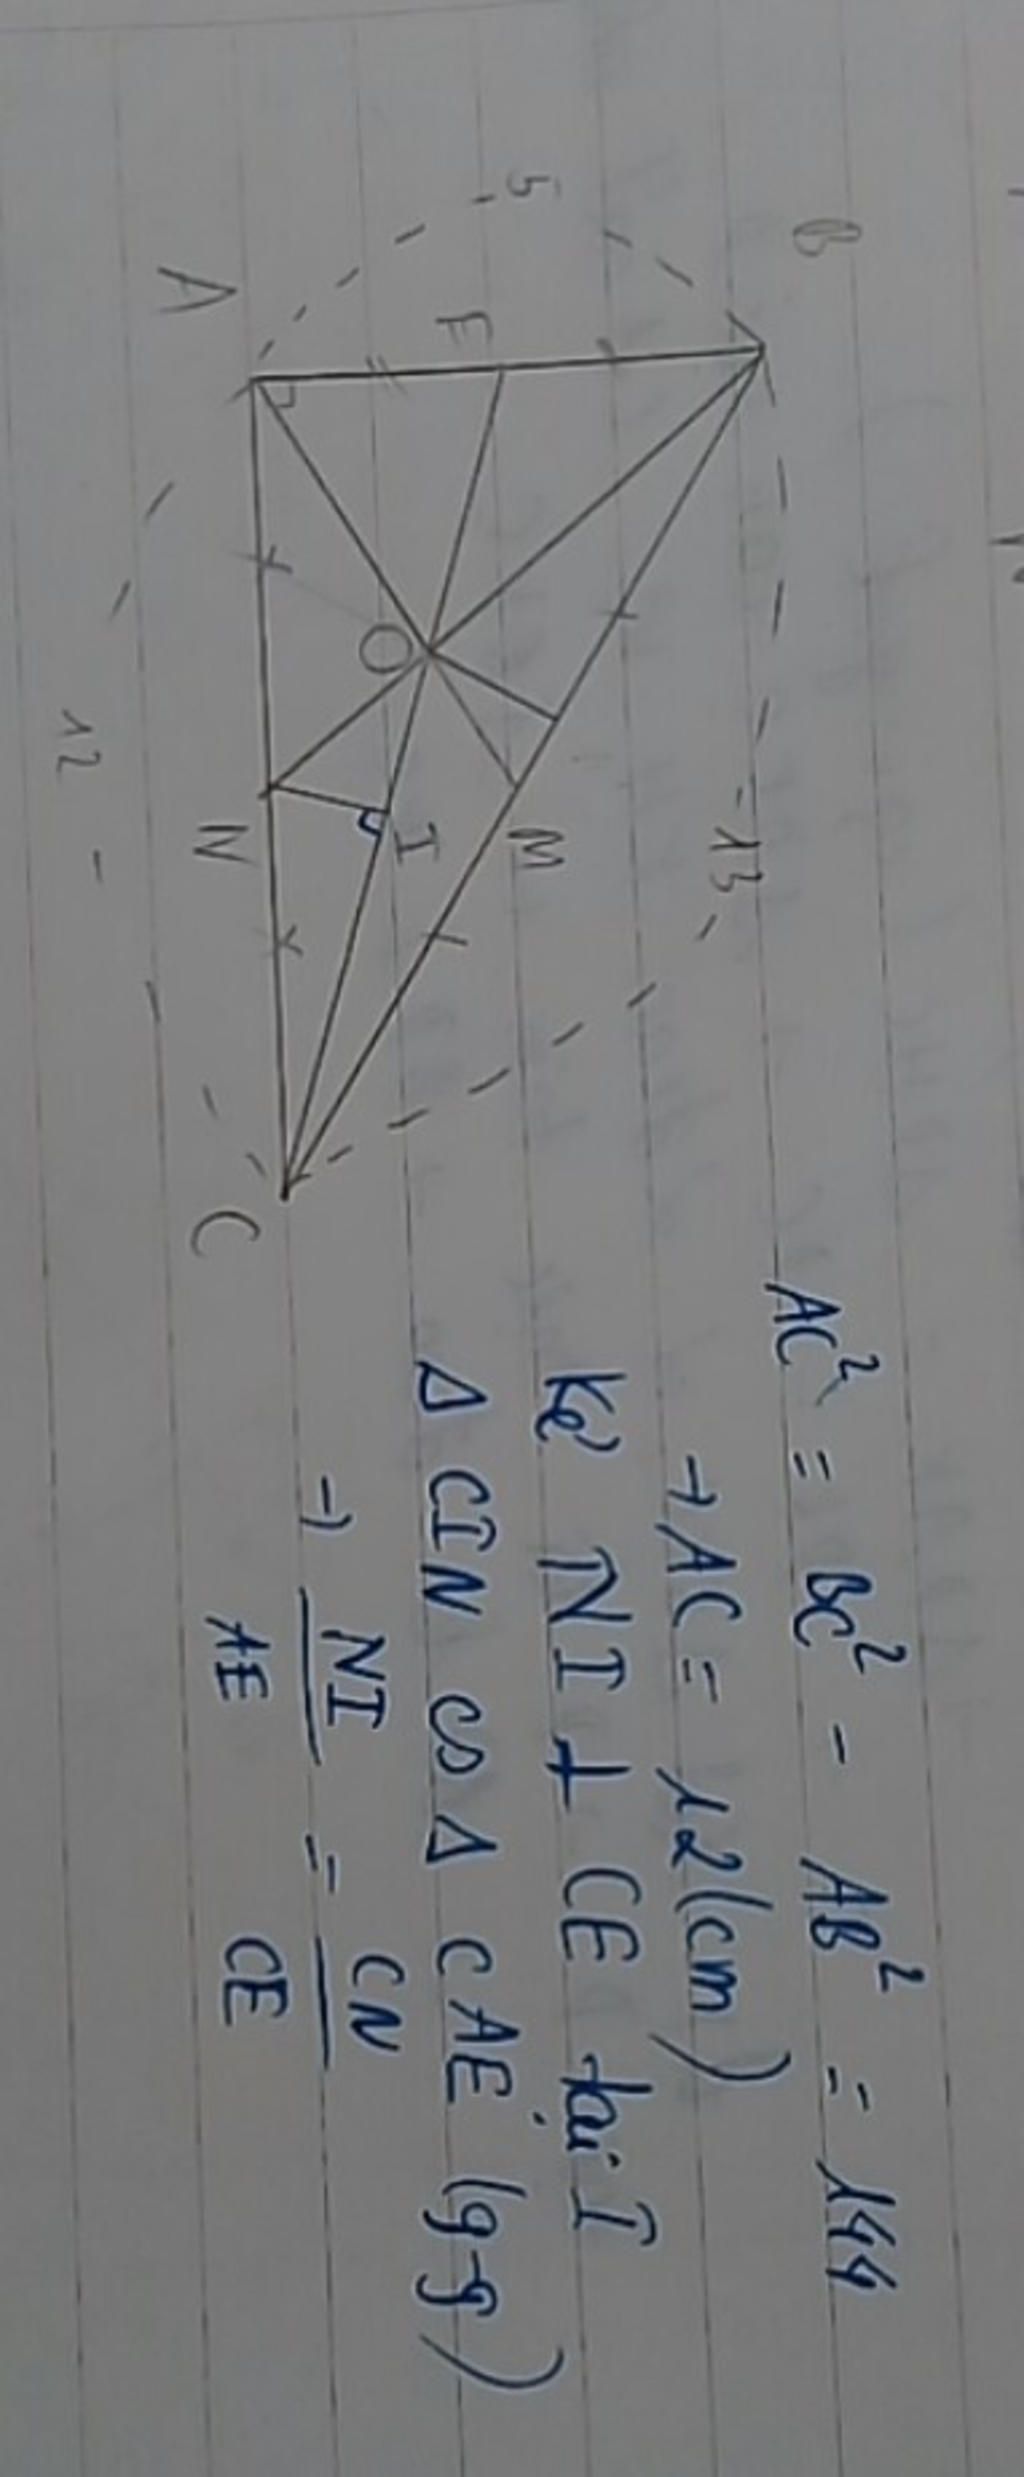 B
5
E
A
O
M
13
N
I
12
C
AC² = BC² - AB² = 144
→ AC = 12 (cm)
Kẻ NI ⊥ CE tại I
Δ CIN ∽ Δ CAE (g-g)
→ NI/AE = CN/CE